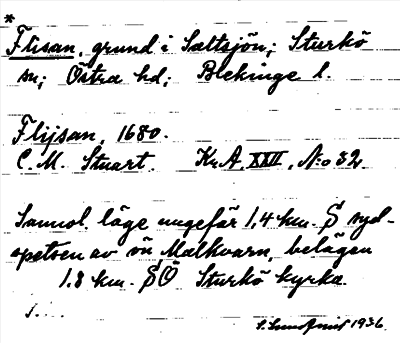 *
Flisan, grund i Saltsjön; Sturkö
sn; Östra hd; Blekinge l.
Flijsan, 1680.
C. M. Stuart. Kr.A. XXII, N:o 32.
Sannol. läge ungefär 1,4 km. S syd-
spetsen av ön Malkvarn, belägen
1.8 km. SÖ Sturkö kyrka.
1936.